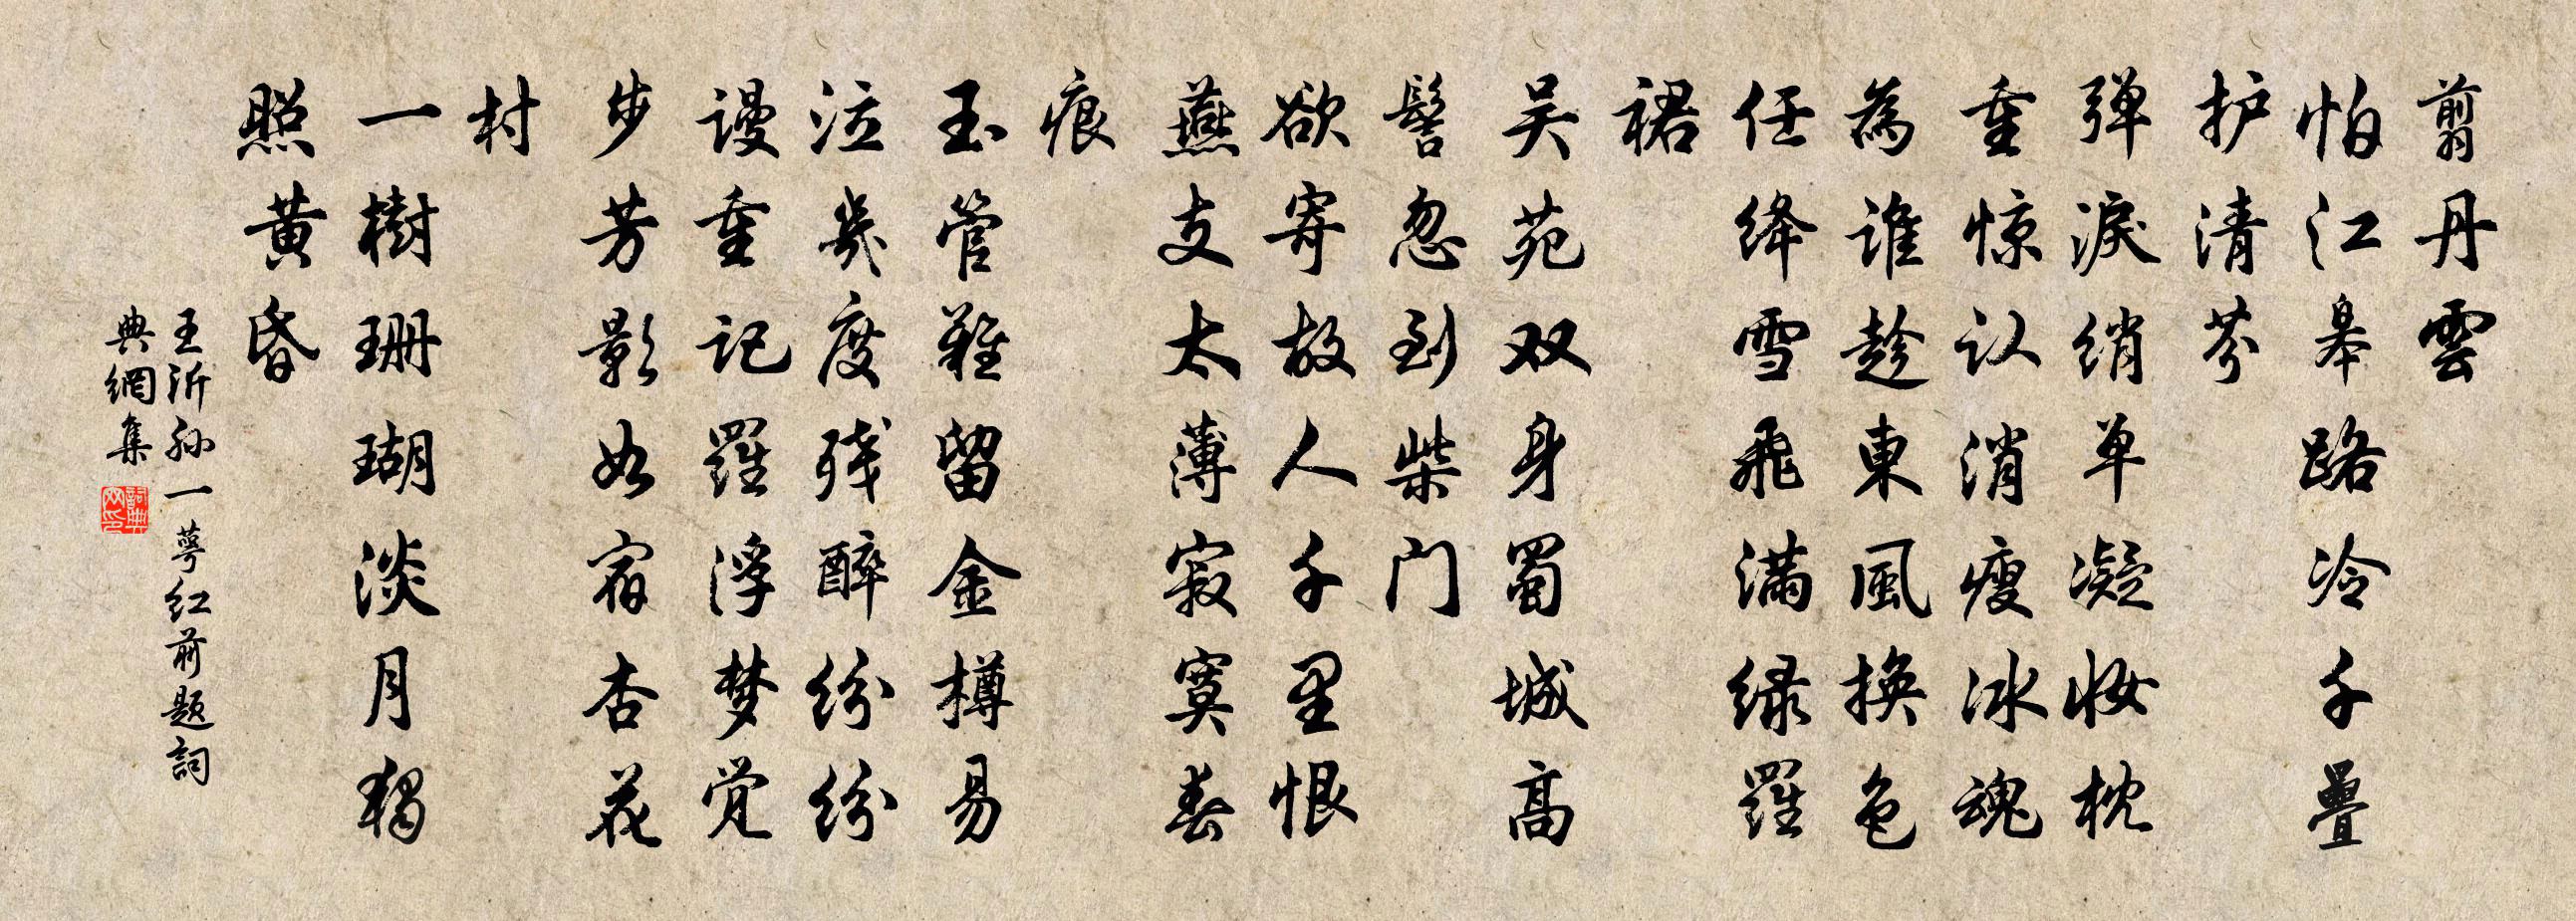 剪丹雲
怕江皋路冷千疊
护清芬
弹淚绡单凝妝枕
重惊认消瘦冰魂
為谁趁東風换色
任绛雪飛满绿羅
裙
吴苑双身蜀城高
髻忽到柴门
欲寄故人千里恨
燕支太薄寂寞春
痕
玉管難留金樽易
泣幾度残醉纷纷
谩重记羅浮梦觉
步芳影如宿杏花
村
一樹珊瑚淡月獨
照黄昏
王沂孙一萼红前题詞
典網集
詞典网印